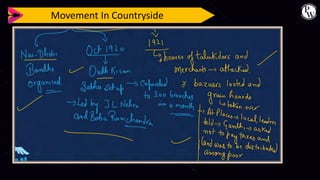 Movement In Countryside
Nai-Dhobi
Bandhs
organised
Oct 1920
Oudh Kisan
Sabha set up
→ Led by J L Nehru
and Baba Ramchandra
→ expanded
to 300 branches
in a month
1921
→ houses of talukdars and
merchants → attacked
→ bazaars looted and
grain hoards
→ taken over
→ At places → local leaders
told → Gandhi → asked
not to pay taxes and
land was to be distributed
among poor